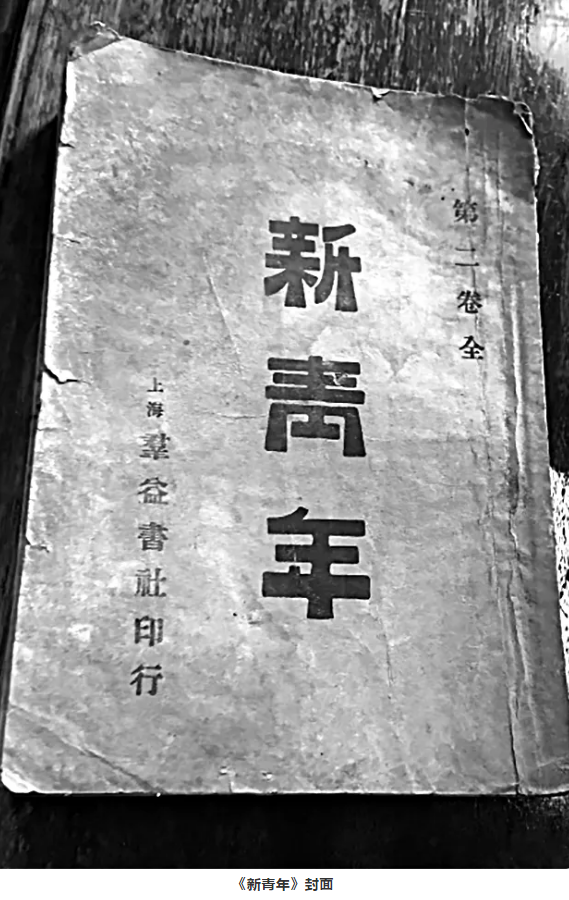 第二卷全
新青年
上海羣益書社印行
《新青年》封面